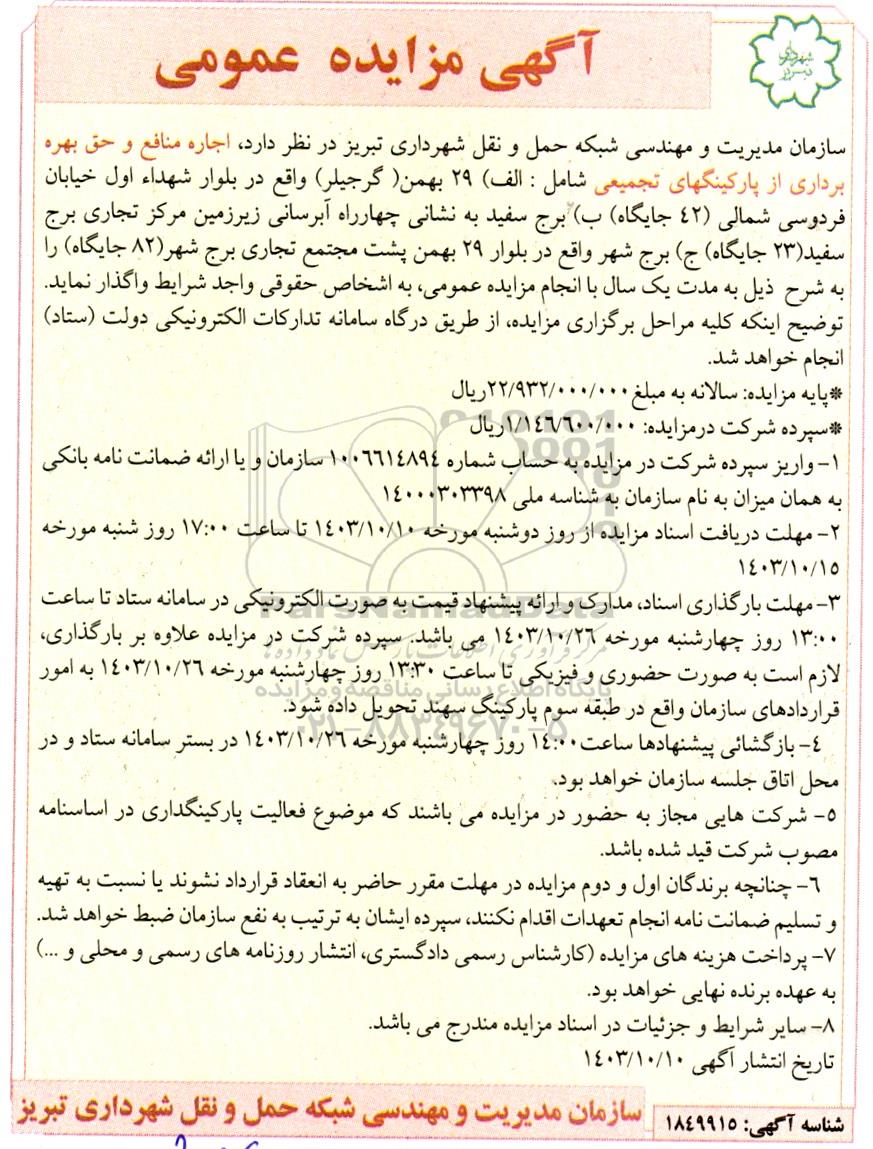 آگهی مزایده عمومی
شهرداری
تبریز
سازمان مدیریت و مهندسی شبکه حمل و نقل شهرداری تبریز در نظر دارد، اجاره منافع و حق بهره
برداری از پارکینگهای تجمیعی شامل : الف) ۲۹ بهمن( گرجیلر) واقع در بلوار شهداء اول خیابان
فردوسی شمالی (۴۲ جایگاه) ب) برج سفید به نشانی چهارراه آبرسانی زیرزمین مرکز تجاری برج
سفید(۲۳ جایگاه) ج) برج شهر واقع در بلوار ۲۹ بهمن پشت مجتمع تجاری برج شهر(۸۲ جایگاه) را
به شرح ذیل به مدت یک سال با انجام مزایده عمومی، به اشخاص حقوقی واجد شرایط واگذار نماید.
توضیح اینکه کلیه مراحل برگزاری مزایده، از طریق درگاه سامانه تدارکات الکترونیکی دولت (ستاد)
انجام خواهد شد.
*پایه مزایده: سالانه به مبلغ ۲۲/۹۳۲/۰۰۰/۰۰۰ریال
*سپرده شرکت درمزایده: ۱/۱۴۶/۶۰۰/۰۰۰ریال
۱- واریز سپرده شرکت در مزایده به حساب شماره ۱۰۰۶۶۱۴۸۹۴ سازمان و یا ارائه ضمانت نامه بانکی
به همان میزان به نام سازمان به شناسه ملی ۱۴۰۰۰۳۰۳۳۹۸
۲- مهلت دریافت اسناد مزایده از روز دوشنبه مورخه ۱۴۰۳/۱۰/۱۰ تا ساعت ۱۷:۰۰ روز شنبه مورخه
۱۴۰۳/۱۰/۱۵
۳- مهلت بارگذاری اسناد، مدارک و ارائه پیشنهاد قیمت به صورت الکترونیکی در سامانه ستاد تا ساعت
۱۳:۰۰ روز چهارشنبه مورخه ۱۴۰۳/۱۰/۲۶ می باشد. سپرده شرکت در مزایده علاوه بر بارگذاری،
لازم است به صورت حضوری و فیزیکی تا ساعت ۱۳:۳۰ روز چهارشنبه مورخه ۱۴۰۳/۱۰/۲۶ به امور
قراردادهای سازمان واقع در طبقه سوم پارکینگ سهند تحویل داده شود.
۴- بازگشائی پیشنهادها ساعت۱۴:۰۰ روز چهارشنبه مورخه ۱۴۰۳/۱۰/۲۶ در بستر سامانه ستاد و در
محل اتاق جلسه سازمان خواهد بود.
۵- شرکت هایی مجاز به حضور در مزایده می باشند که موضوع فعالیت پارکینگداری در اساسنامه
مصوب شرکت قید شده باشد.
۶- چنانچه برندگان اول و دوم مزایده در مهلت مقرر حاضر به انعقاد قرارداد نشوند یا نسبت به تهیه
و تسلیم ضمانت نامه انجام تعهدات اقدام نکنند، سپرده ایشان به ترتیب به نفع سازمان ضبط خواهد شد.
۷- پرداخت هزینه های مزایده (کارشناس رسمی دادگستری، انتشار روزنامه های رسمی و محلی و ...)
به عهده برنده نهایی خواهد بود.
۸- سایر شرایط و جزئیات در اسناد مزایده مندرج می باشد.
تاریخ انتشار آگهی ۱۴۰۳/۱۰/۱۰
سازمان مدیریت و مهندسی شبکه حمل و نقل شهرداری تبریز
شناسه آگهی: ۱۸۴۹۹۱۵
ParsNamadData
پایگاه اطلاع رسانی مناقصه و مزایده
۰۲۱-۸۸۳۴۹۶۷۰-۵